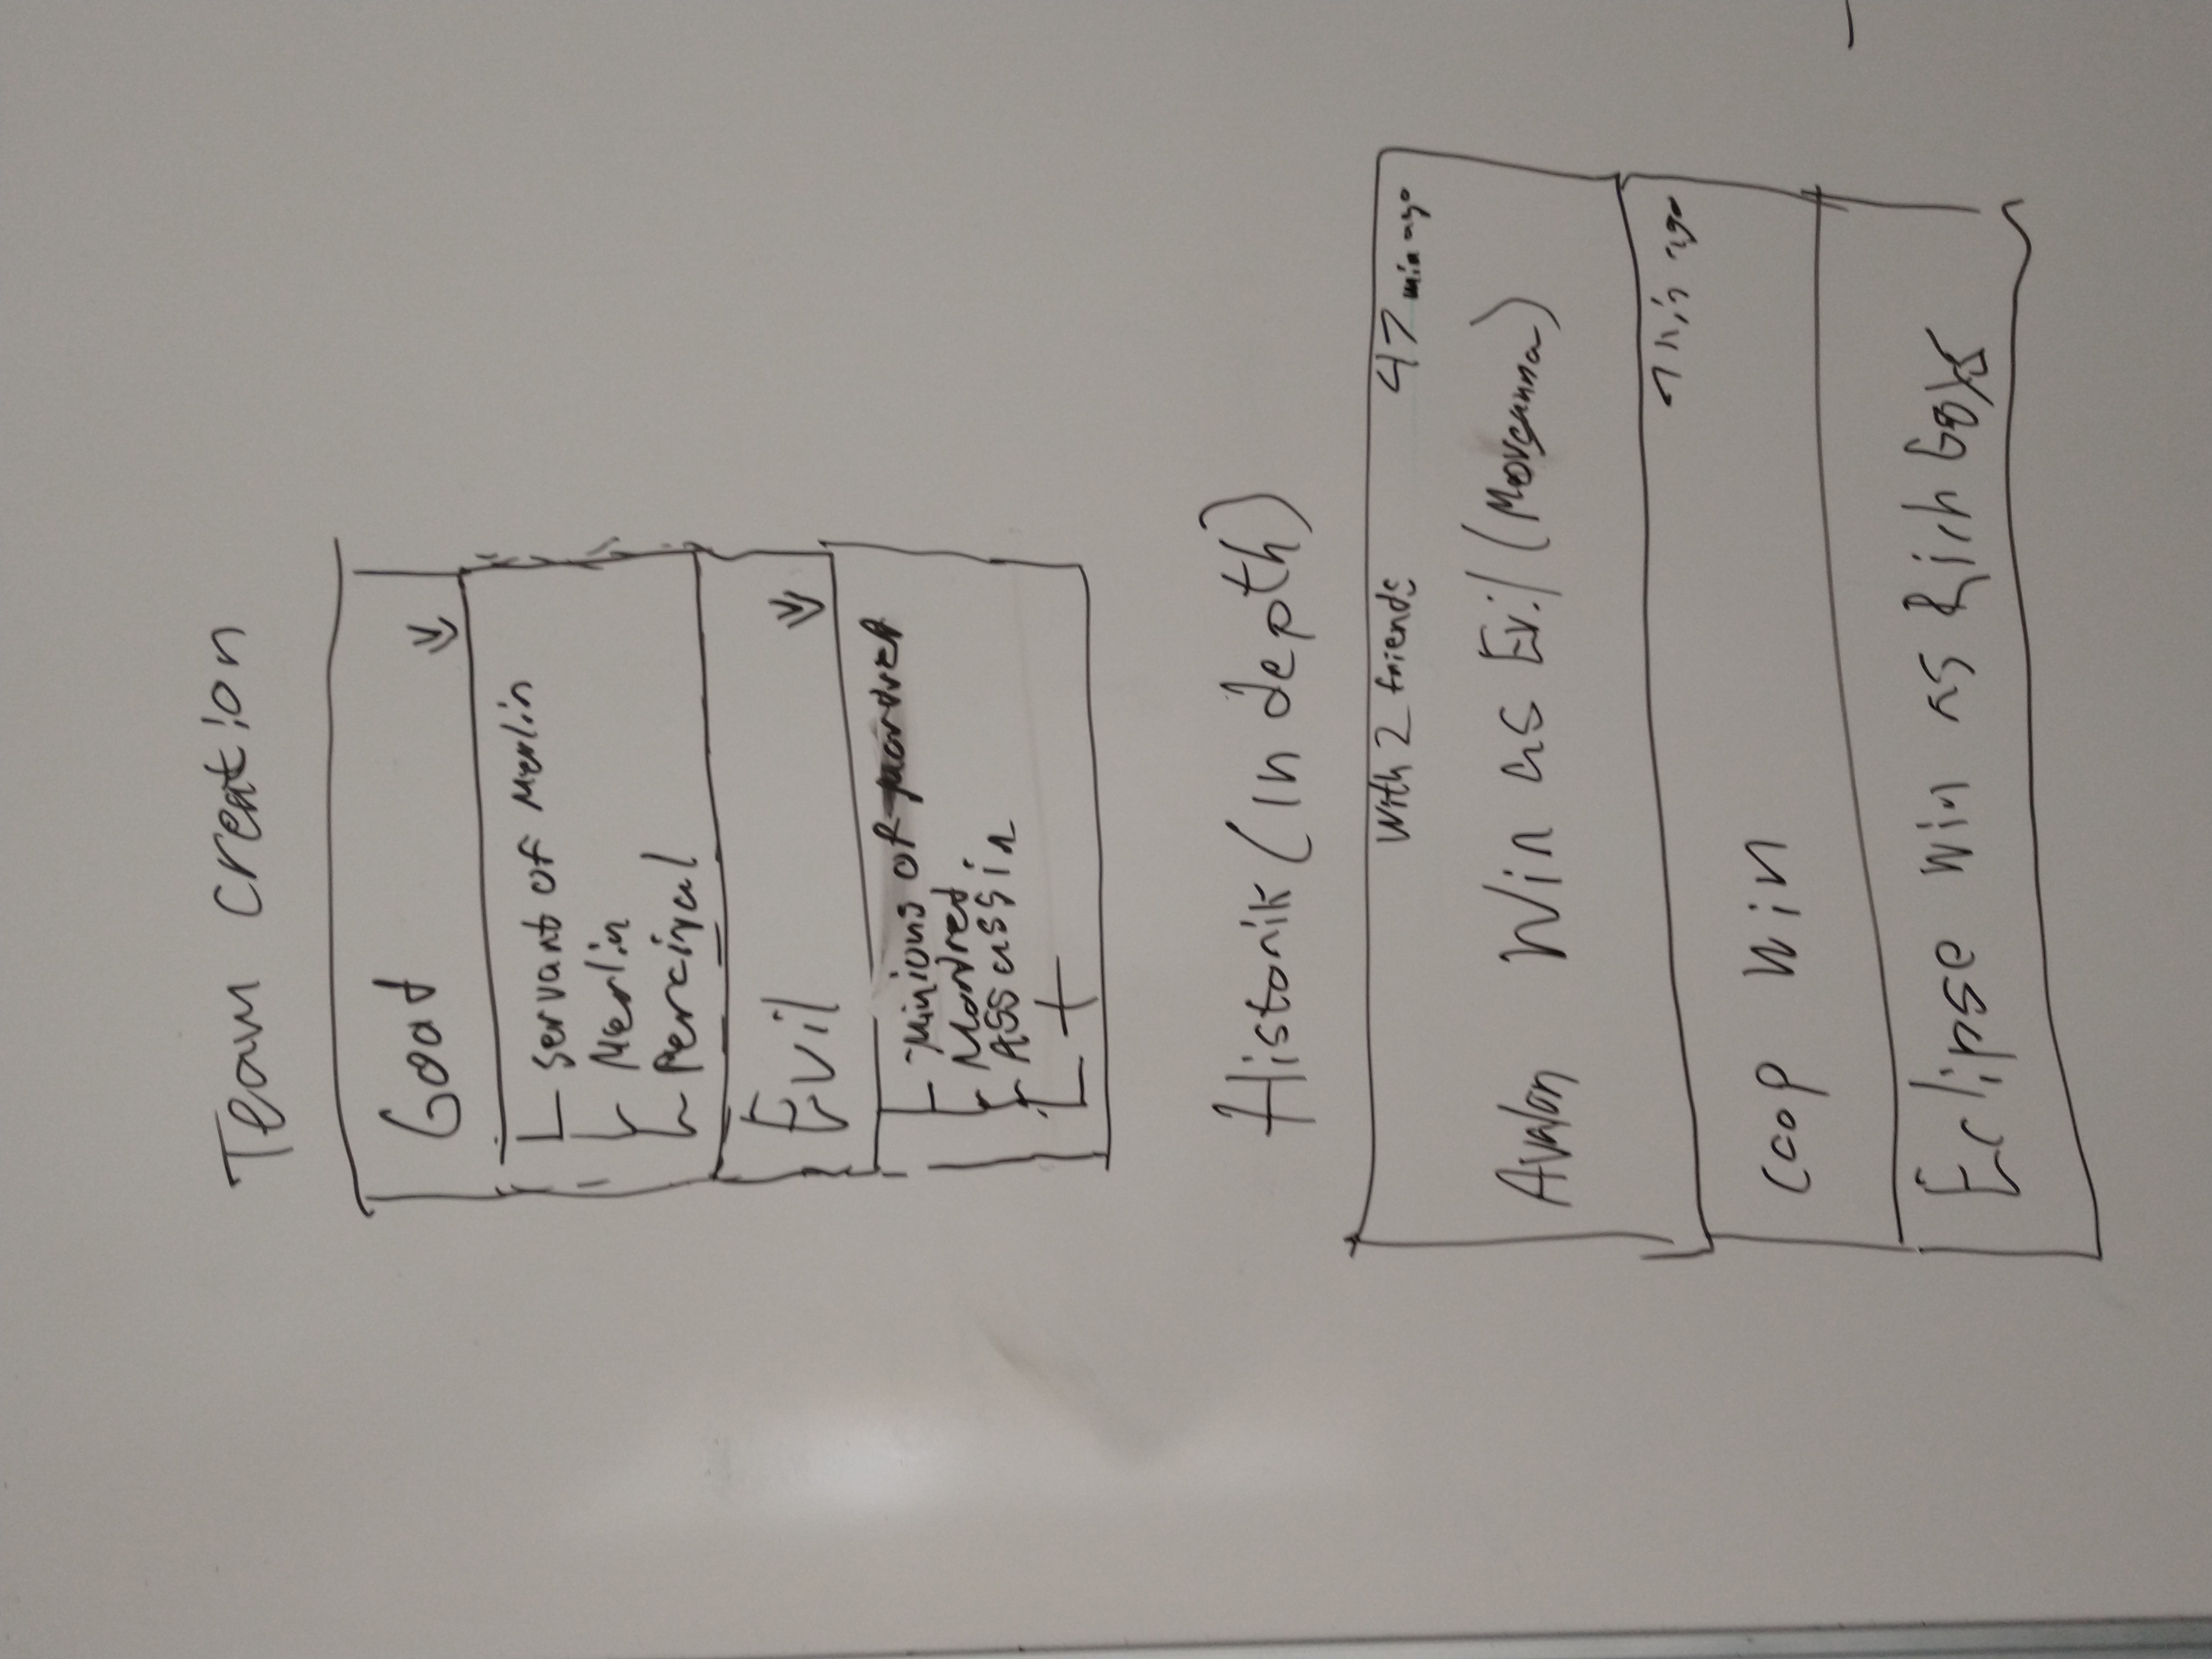 Team creation
Good
servant of Merlin
Merlin
Percival
Evil
Minions of Mordred
Mordred
Assassin
+
Historik (In depth)
With 2 friends 47 min ago
Avalon Win as Evil (Morganna)
1 min ago
Coop Win
Eclipse Win as Rich